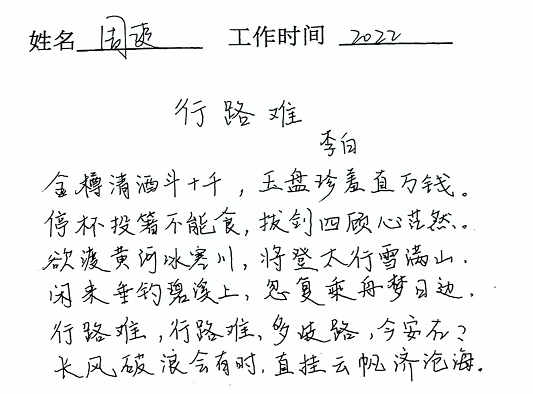 姓名 周 工作时间 2022
行路难
李白
金樽清酒斗十千，玉盘珍羞直万钱。
停杯投箸不能食，拔剑四顾心茫然。
欲渡黄河冰塞川，将登太行雪满山.
闲来垂钓碧溪上，忽复乘舟梦日边.
行路难，行路难，多歧路，今安在？
长风破浪会有时，直挂云帆济沧海.